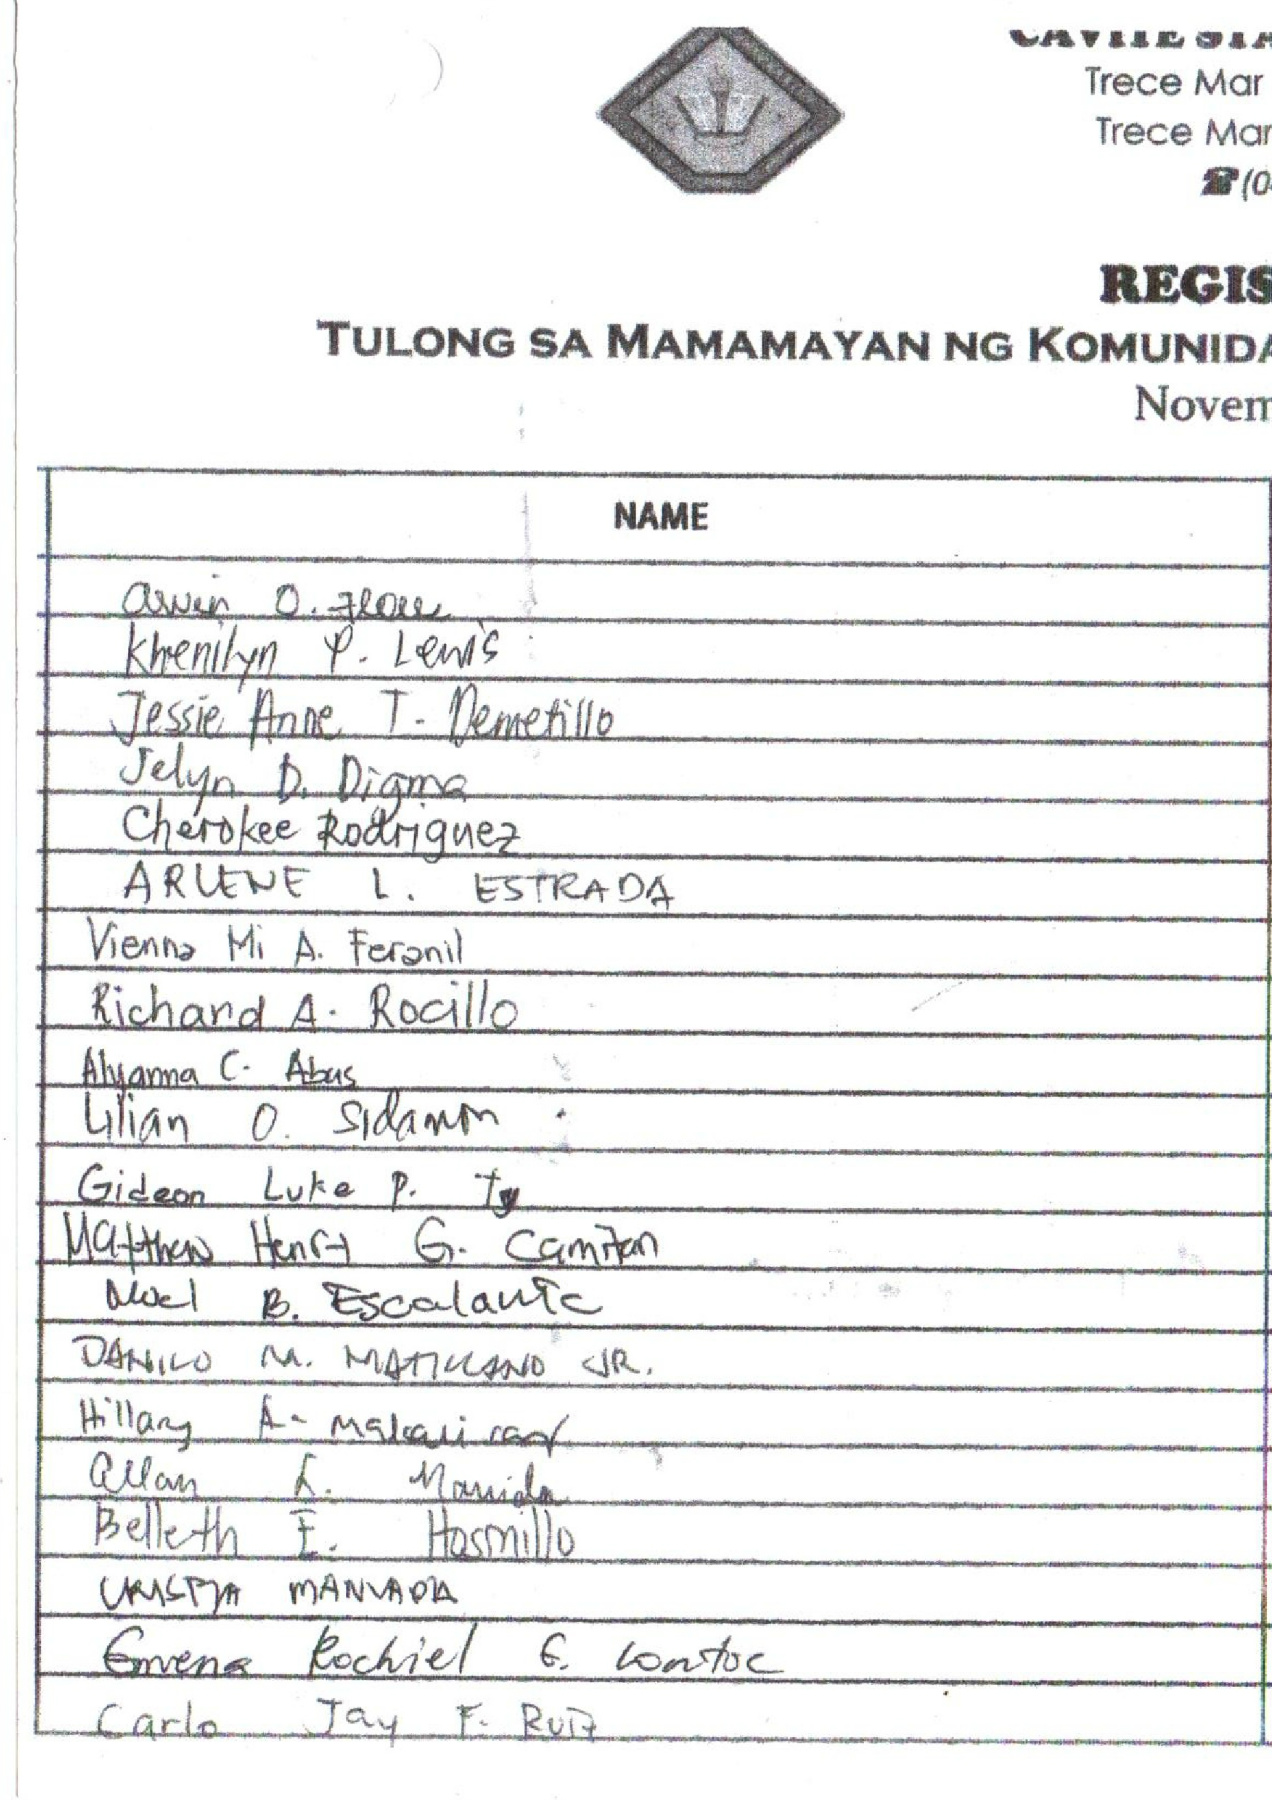 CAVITE STA
Trece Mar
Trece Mar
☎(0
REGIS
TULONG SA MAMAMAYAN NG KOMUNIDA
Novem
NAME
O.
Khenilyn P. Lewis
Jessie Anne T. Demetillo
Jelyn D. Digma
Cherokee Rodriguez
ARLENE L. ESTRADA
Vienna Mi A. Feranil
Richard A. Rocillo
Alyanna C. Abus
Lilian O.
Gideon Luke P. Ty
Matthew Henry G.
Noel B. Escalante
DANILO M. JR.
Hillary A.
Allan
Belleth E. Hosmillo
Rochiel G. Lontoc
Carlo Jay F. Ruiz